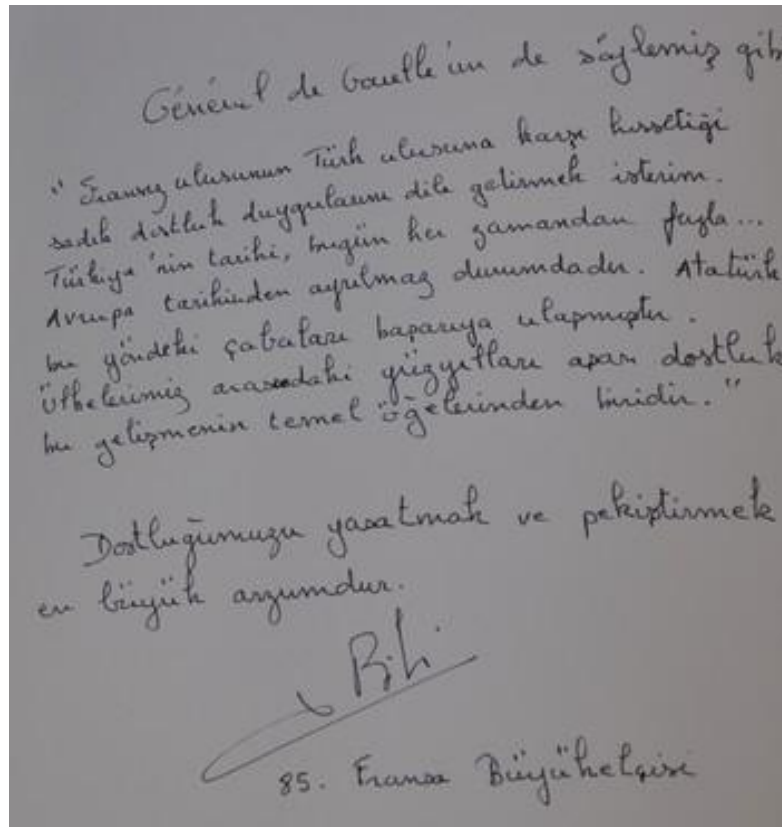 Général de Gaulle'ün de söylemiş gib
"Fransız ulusunun Türk ulusuna karşı hissetiği
sadık dostluk duygularını dile getirmek isterim.
Türkiye'nin tarihi, bugün her zamandan fazla...
Avrupa tarihinden ayrılmaz durumdadır. Atatürk
bu yöndeki çabaları başarıya ulaşmıştır.
Ülkelerimiz arasındaki yüzyılları aşan dostluk
bu gelişmenin temel öğelerinden biridir."
Dostluğumuzu yaşatmak ve pekiştirmek
en büyük arzumdur.
85. Fransa Büyükelçisi